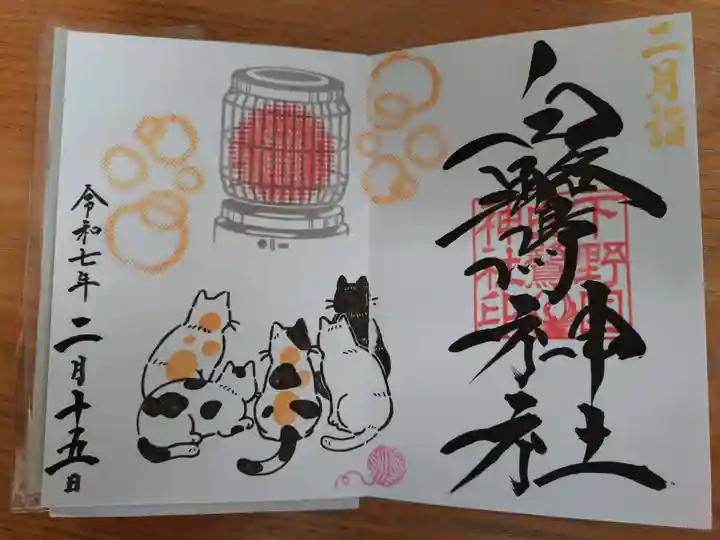 二月詣
白鷺神社
下野国
白鷺
神社印
令和七年二月十五日